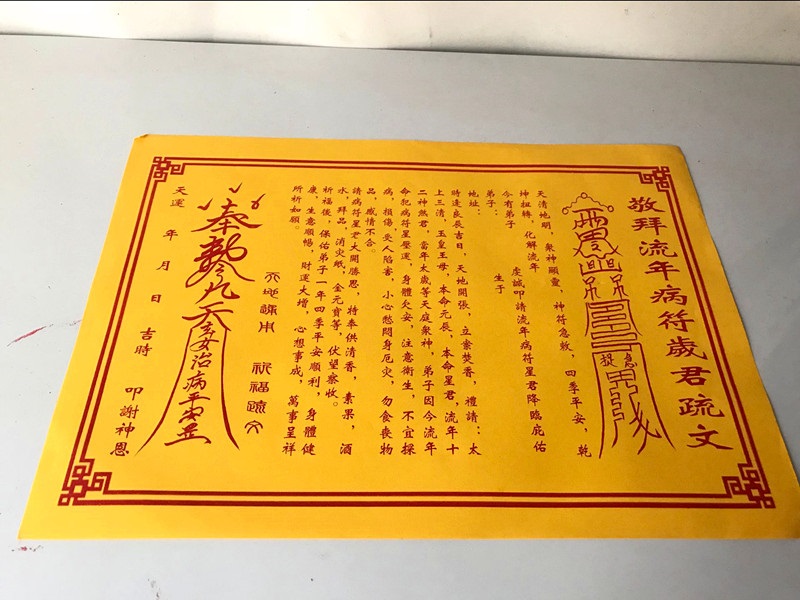 敬拜流年病符歲君疏文
天清地明，眾神顯靈，神符急救，四季平安，乾
坤扭轉，化解流年
今有弟子　　虔誠叩請流年病符星君降臨庇佑
弟子：　　生于
地址：
時逢良辰吉日，天地開張，立案焚香，禮請：太
上三清，玉皇王母，本命元辰，本命星君，流年十
二神煞君，當年太歲等天庭眾神，弟子因今流年
命犯病符星壓運，身體欠安，注意衛生，不宜探
病，損傷，受人陷害，小心愁悶身厄災，勿食喪物
品，感情不合。
請病符星君大開勝恩，特奉供清香，素果，酒
水，拜品，消災紙，金元寶等，伏望察收。
祈福後，保佑弟子一年四季平安順利，身體健
康，生意順暢，財運大增，心想事成，萬事呈祥
所祈如願。
祈福疏文
奉勅令九天
治病平安
天運　年　月　日　吉時　叩謝神恩